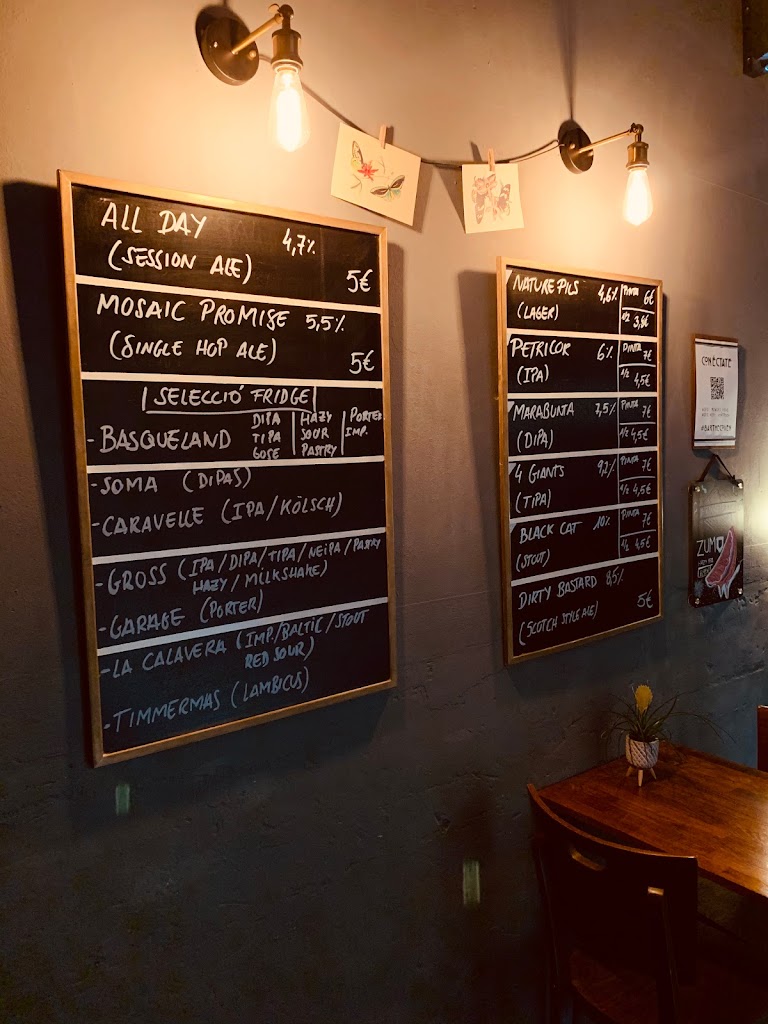 ALL DAY 4,7%
(SESSION ALE) 5€
MOSAIC PROMISE 5,5%
(SINGLE HOP ALE) 5€
SELECCIÓ FRIDGE
- BASQUELAND DIPA HAZY PORTER
TIPA SOUR IMP.
GOSE PASTRY
- SOMA (DIPAS)
- CARAVELLE (IPA/KÖLSCH)
- GROSS (IPA/DIPA/TIPA/NEIPA/PASTRY
HAZY/MILKSHAKE)
- GARAGE (PORTER)
- LA CALAVERA (IMP./BALTIC/STOUT
RED SOUR)
- TIMMERMAS (LAMBICUS)
NATURE PILS 4,6% PINTA 6€
(LAGER) 1/2 3,8€
PETRICOR 6% PINTA 7€
(IPA) 1/2 4,5€
MARABUNTA 7,5% PINTA 7€
(DIPA) 1/2 4,5€
4 GIANTS 9,2% PINTA 7€
(TIPA) 1/2 4,5€
BLACK CAT 10% PINTA 7€
(STOUT) 1/2 4,5€
DIRTY BASTARD 8,5%
(SCOTCH STYLE ALE) 5€
CONÉCTATE
ZUMO